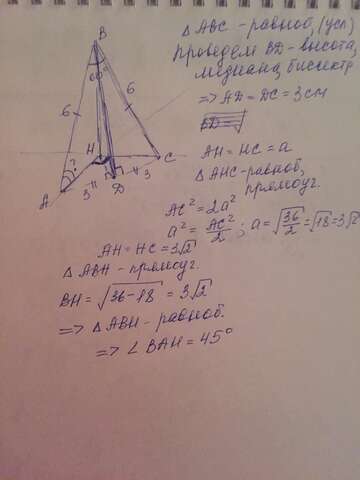 B
60°
6
6
H
?
A
3
D
3
C
△ABC - равноб, (усл)
проведем BD - высота,
медиана, биссектр.
=> AD = DC = 3 см
AH = HC = a
△AHC - равноб,
прямоуг.
AC² = 2a²
a² = AC²/2 ; a = √36/2 = √18 = 3√2
AH = HC = 3√2
△ABH - прямоуг.
BH = √36-18 = 3√2
=> △ABH - равноб.
=> ∠BAH = 45°